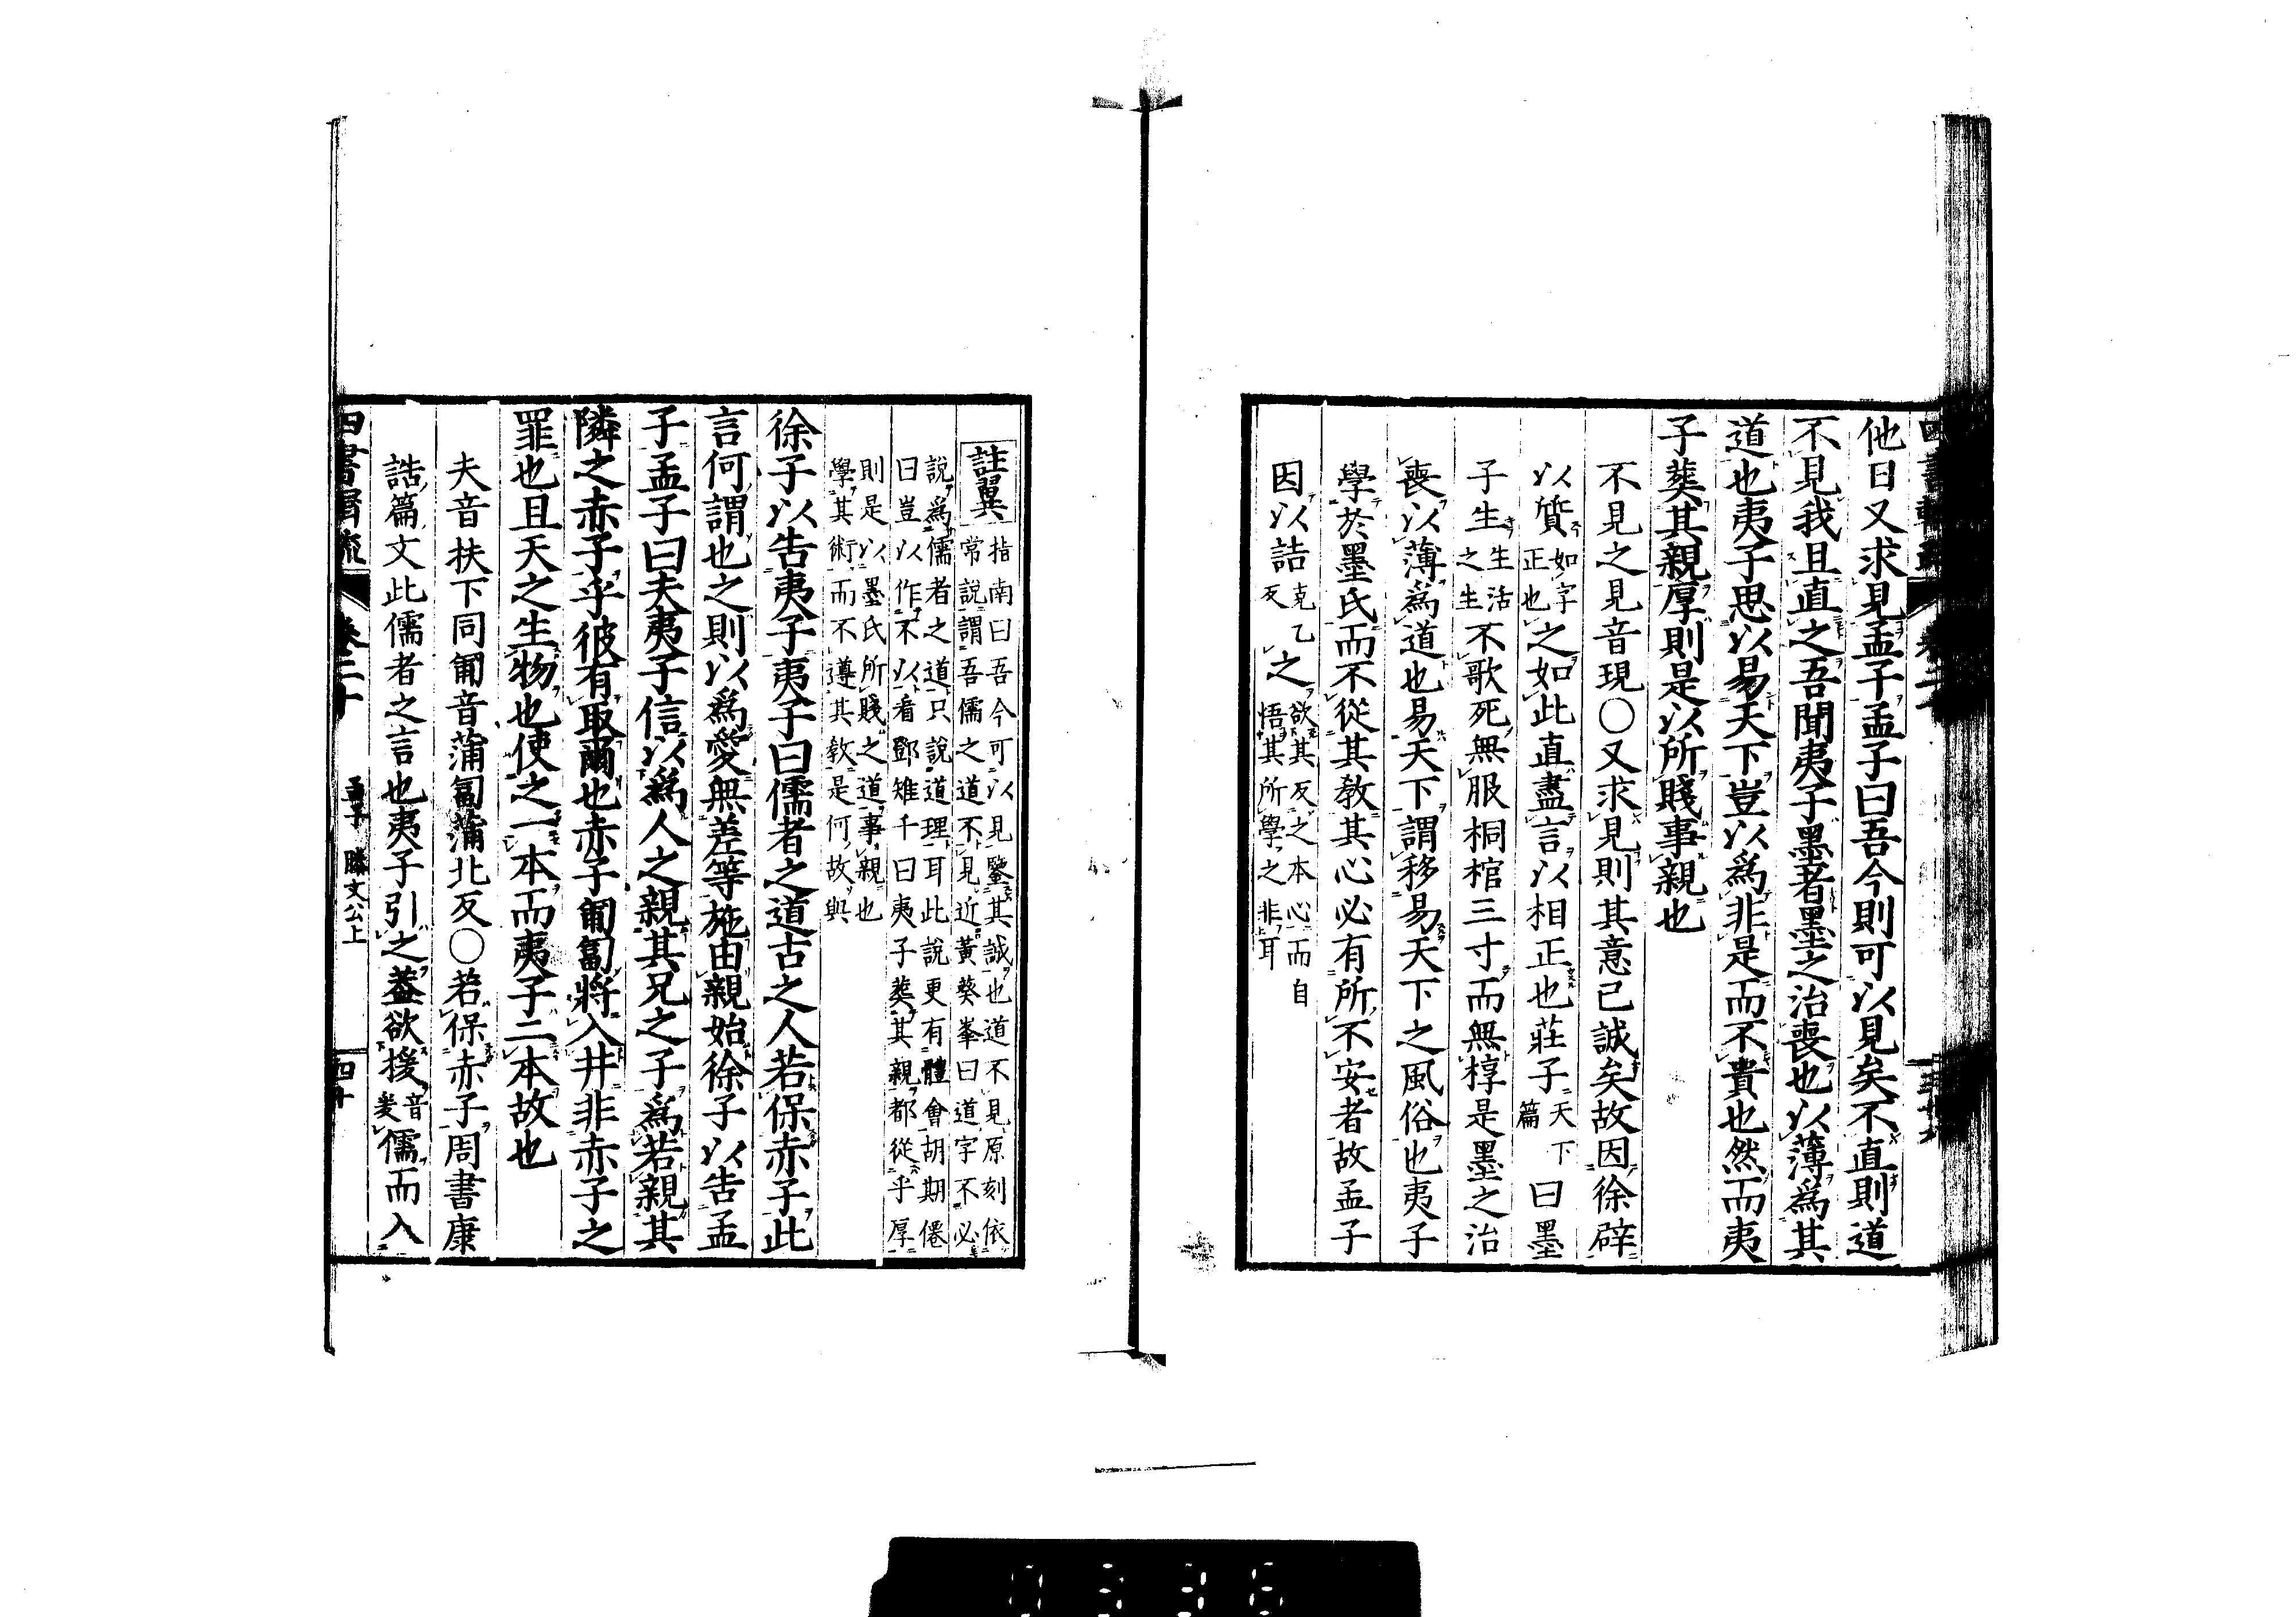 他日又求見孟子孟子曰吾今則可以見矣不直則道
不見我且直之吾聞夷子墨者墨之治喪也以薄爲其
道也夷子思以易天下豈以爲非是而不貴也然而夷
子葬其親厚則是以所賤事親也
不見之見音現〇又求見則其意已誠矣故因徐辟
以質如字正也之如此直盡言以相正也莊子天下篇曰墨
子生生活之生不歌死無服桐棺三寸而無椁是墨之治
喪以薄爲道也易天下謂移易天下之風俗也夷子
學於墨氏而不從其教其心必有所不安者故孟子
因以詰克乙反之欲其反之本心而自悟其所學之非耳
註翼
指南曰吾今可以見鑒其誠也道不見原刻依
常說謂吾儒之道不見近黃葵峯曰道字不必
說爲儒者之道只說道理耳此說更有體會胡期僊
曰豈以作不以看鄧雉千曰夷子葬其親都從乎厚
則是以墨氏所賤之道事親也
學其術而不遵其教是何故與
徐子以告夷子夷子曰儒者之道古之人若保赤子此
言何謂也之則以爲愛無差等施由親始徐子以告孟
子孟子曰夫夷子信以爲人之親其兄之子爲若親其
隣之赤子乎彼有取爾也赤子匍匐將入井非赤子之
罪也且天之生物也使之一本而夷子二本故也
夫音扶下同匍音蒲匐蒲北反〇若保赤子周書康
誥篇文此儒者之言也夷子引之葢欲援音爰儒而入
四書
卷二十
孟子 滕文公上
四十